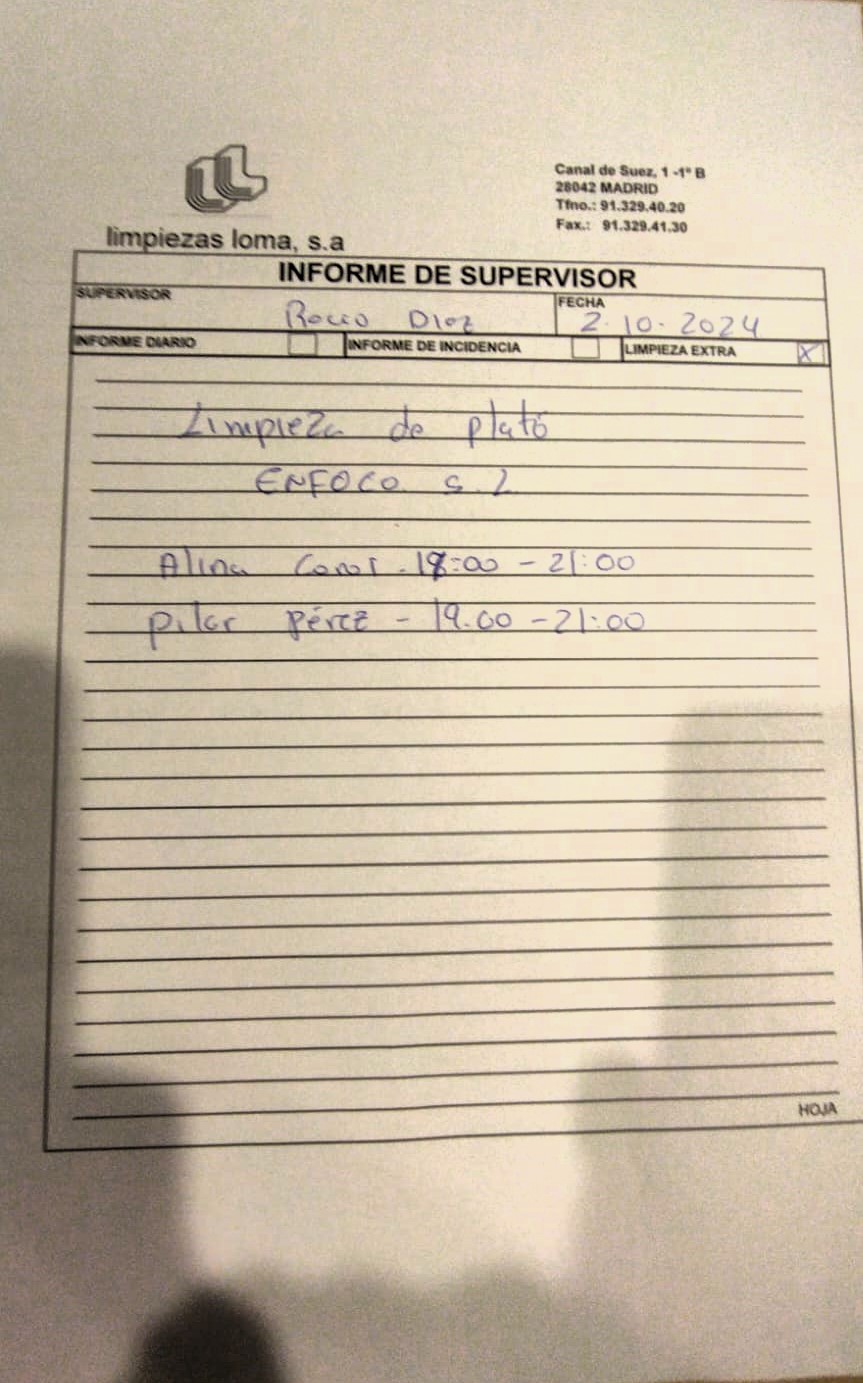 Canal de Suez, 1 -1º B
28042 MADRID
Tfno.: 91.329.40.20
Fax.: 91.329.41.30
limpiezas loma, s.a
INFORME DE SUPERVISOR
SUPERVISOR
Rocío Díez
FECHA
2.10.2024
INFORME DIARIO INFORME DE INCIDENCIA LIMPIEZA EXTRA X
Limpieza de plató
ENFOCO S.L
Alina - 18:00 - 21:00
Pilar Pérez - 19.00 - 21:00
HOJA